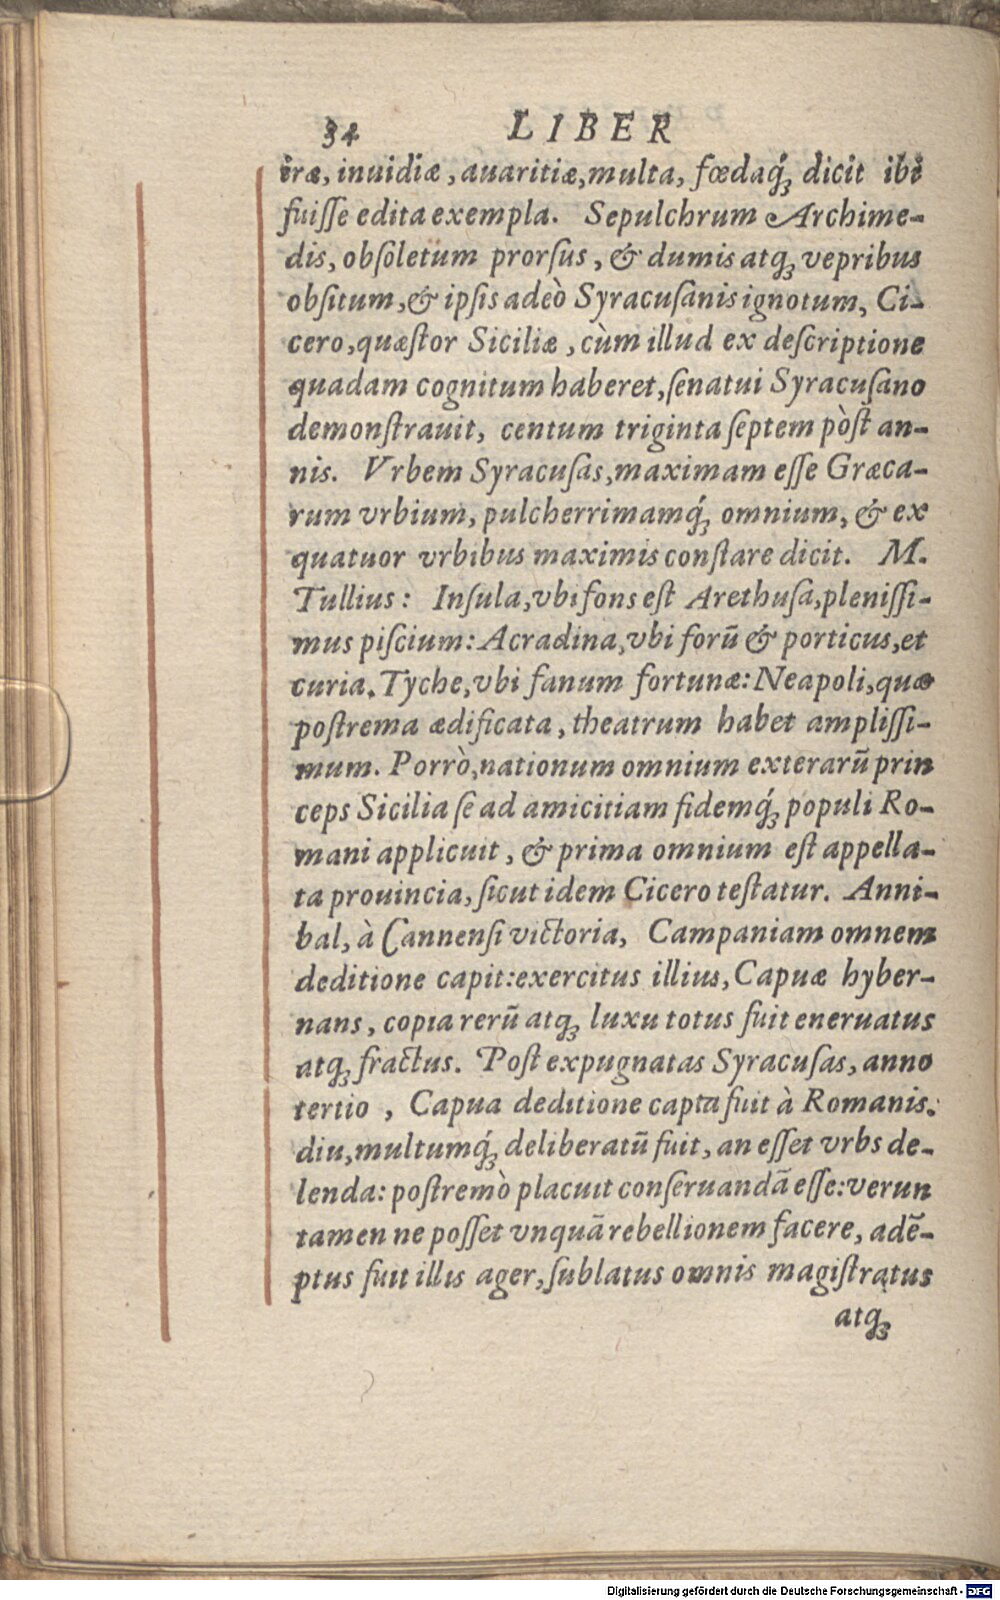 34 LIBER
iræ, inuidiæ, auaritiæ, multa, fœdaq́ꝫ dicit ibi
fuiſſe edita exempla. Sepulchrum Archime-
dis, obſoletum prorſus, & dumis atqꝫ vepribus
obſitum, & ipſis adeò Syracuſanis ignotum, Ci-
cero, quæſtor Siciliæ, cùm illud ex deſcriptione
quadam cognitum haberet, ſenatui Syracuſano
demonſtrauit, centum triginta ſeptem pòſt an-
nis. Vrbem Syracuſas, maximam eſſe Græca-
rum vrbium, pulcherrimamq́ꝫ omnium, & ex
quatuor vrbibus maximis conſtare dicit. M.
Tullius: Inſula, vbi fons eſt Arethuſa, pleniſſi-
mus piſcium: Acradina, vbi forũ & porticus, et
curia. Tyche, vbi fanum fortunæ: Neapoli, quæ
poſtrema ædificata, theatrum habet ampliſſi-
mum. Porrò, nationum omnium exterarũ prin
ceps Sicilia ſe ad amicitiam fidemq́ꝫ populi Ro-
mani applicuit, & prima omnium eſt appella-
ta prouincia, ſicut idem Cicero teſtatur. Anni-
bal, à Cannenſi victoria, Campaniam omnem
deditione capit: exercitus illius, Capuæ hyber-
nans, copia rerũ atqꝫ luxu totus fuit eneruatus
atqꝫ fractus. Poſt expugnatas Syracuſas, anno
tertio, Capua deditione capta fuit à Romanis.
diu, multumq́ꝫ deliberatũ fuit, an eſſet vrbs de-
lenda: poſtremò placuit conſeruandã eſſe: verun
tamen ne poſſet vnquã rebellionem facere, adẽ-
ptus fuit illis ager, ſublatus omnis magiſtratus
atqꝫ
Digitalisierung gefördert durch die Deutsche Forschungsgemeinschaft - DFG